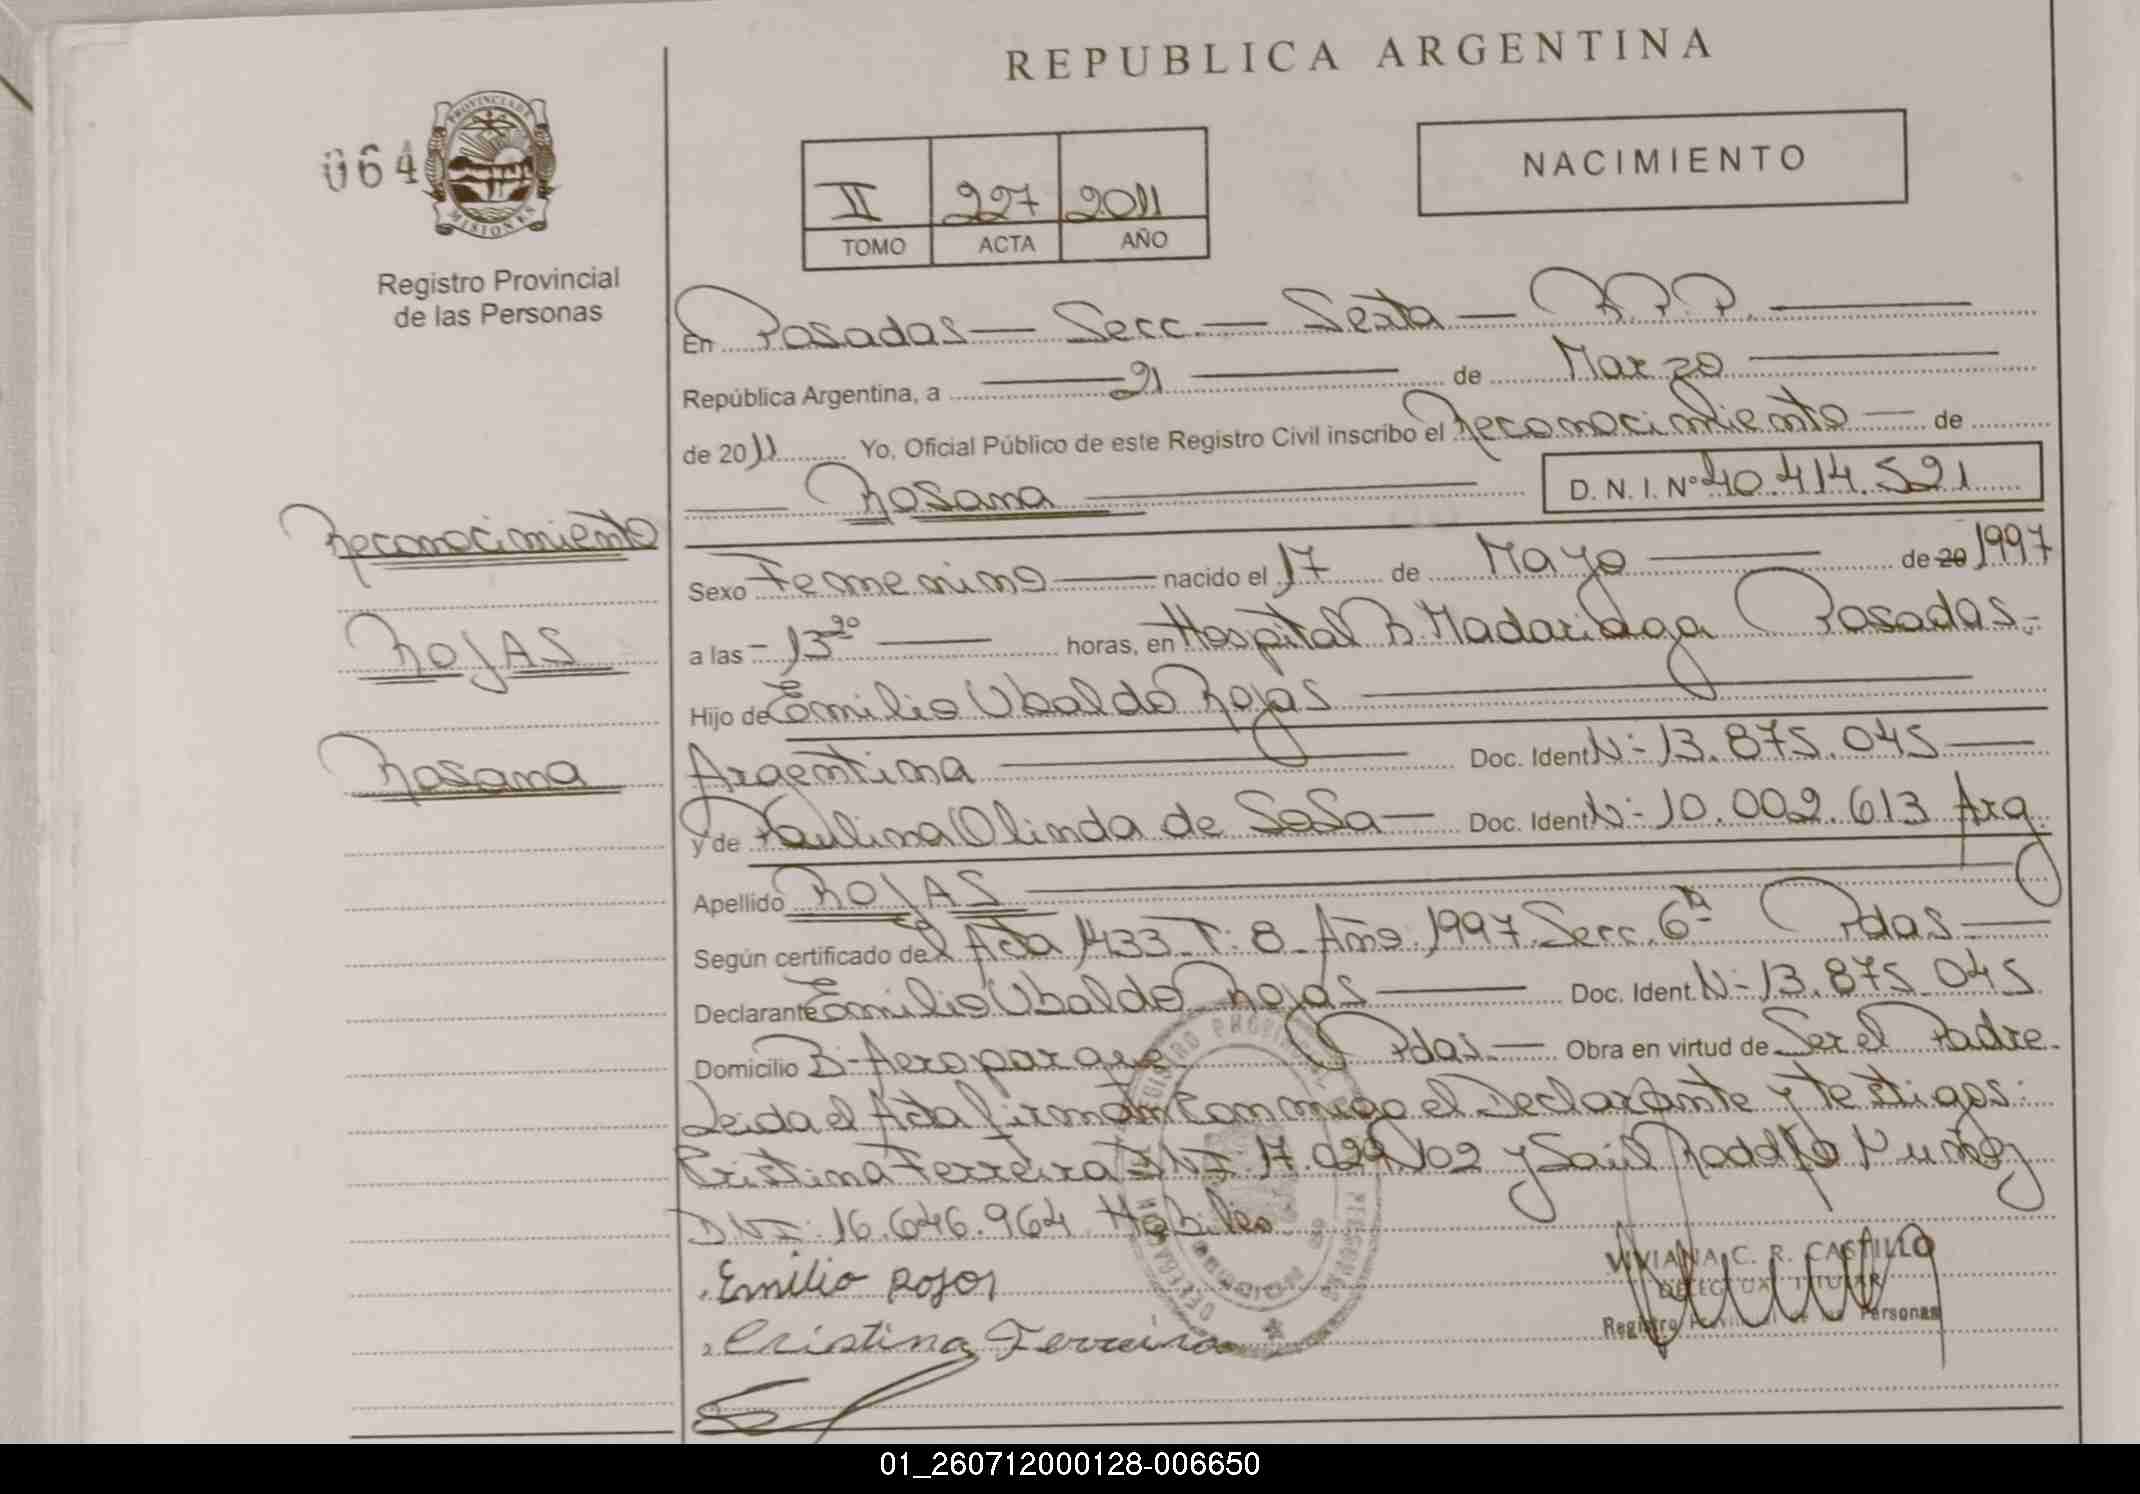 REPUBLICA ARGENTINA
064
PROVINCIA DE
MISIONES
Registro Provincial
de las Personas
II 227 2011
TOMO ACTA AÑO
NACIMIENTO
En Posadas — Secc. — Sexta — R.P.P. —
República Argentina, a — 21 — de Marzo —
de 2011 Yo, Oficial Público de este Registro Civil inscribo el Reconocimiento — de
— Rosana — D. N. I. Nº 40.414.521
Reconocimiento
ROJAS
Rosana
Sexo Femenino — nacido el 17 de Mayo — de 20 1997
a las - 13 20 — horas, en Hospital R. Madariaga Posadas.-
Hijo de Emilio Ubaldo Rojas —
Argentina — Doc. Ident. Nº 13.875.045 —
y de Paulina Olinda de SoSa — Doc. Ident. Nº 10.002.613 Arg.
Apellido ROJAS —
Según certificado del Acta 1433 T: 8 Año 1997 Secc. 6ª Pdas —
Declarante Emilio Ubaldo Rojas — Doc. Ident. Nº 13.875.045
Domicilio Bº Aeroparque Pdas. — Obra en virtud de Ser el Padre.
Leida el Acta firman conmigo el Declarante y testigos:
Cristina Ferreira DNI 17.029.102 y Saúl Rodolfo Nuñez
DNI: 16.646.964 Habiles
Emilio Rojas
Cristina Ferreira
VIVIANA C. R. CASTILLO
DELEGADA TITULAR
Registro Personas
01_260712000128-006650